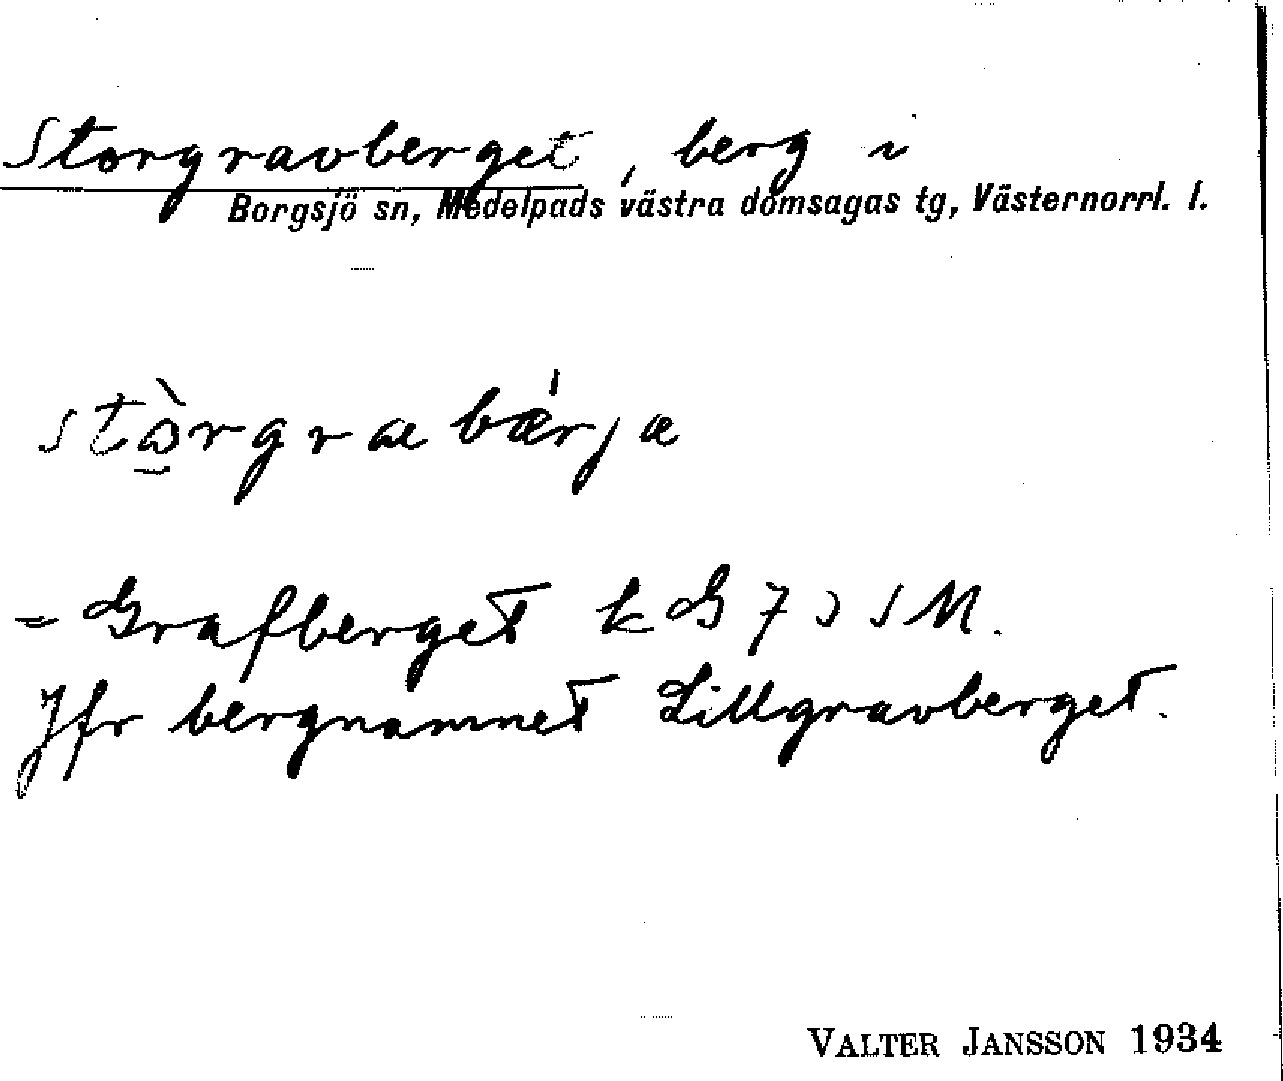 Storgravberget, berg i
Borgsjö sn, Medelpads västra domsagas tg, Västernorrl. l.
stɷ̱̀rgraebǽrjæ
= Grafberget kG 73 SM.
Jfr bergnamnet Lillgravberget.
VALTER JANSSON 1934